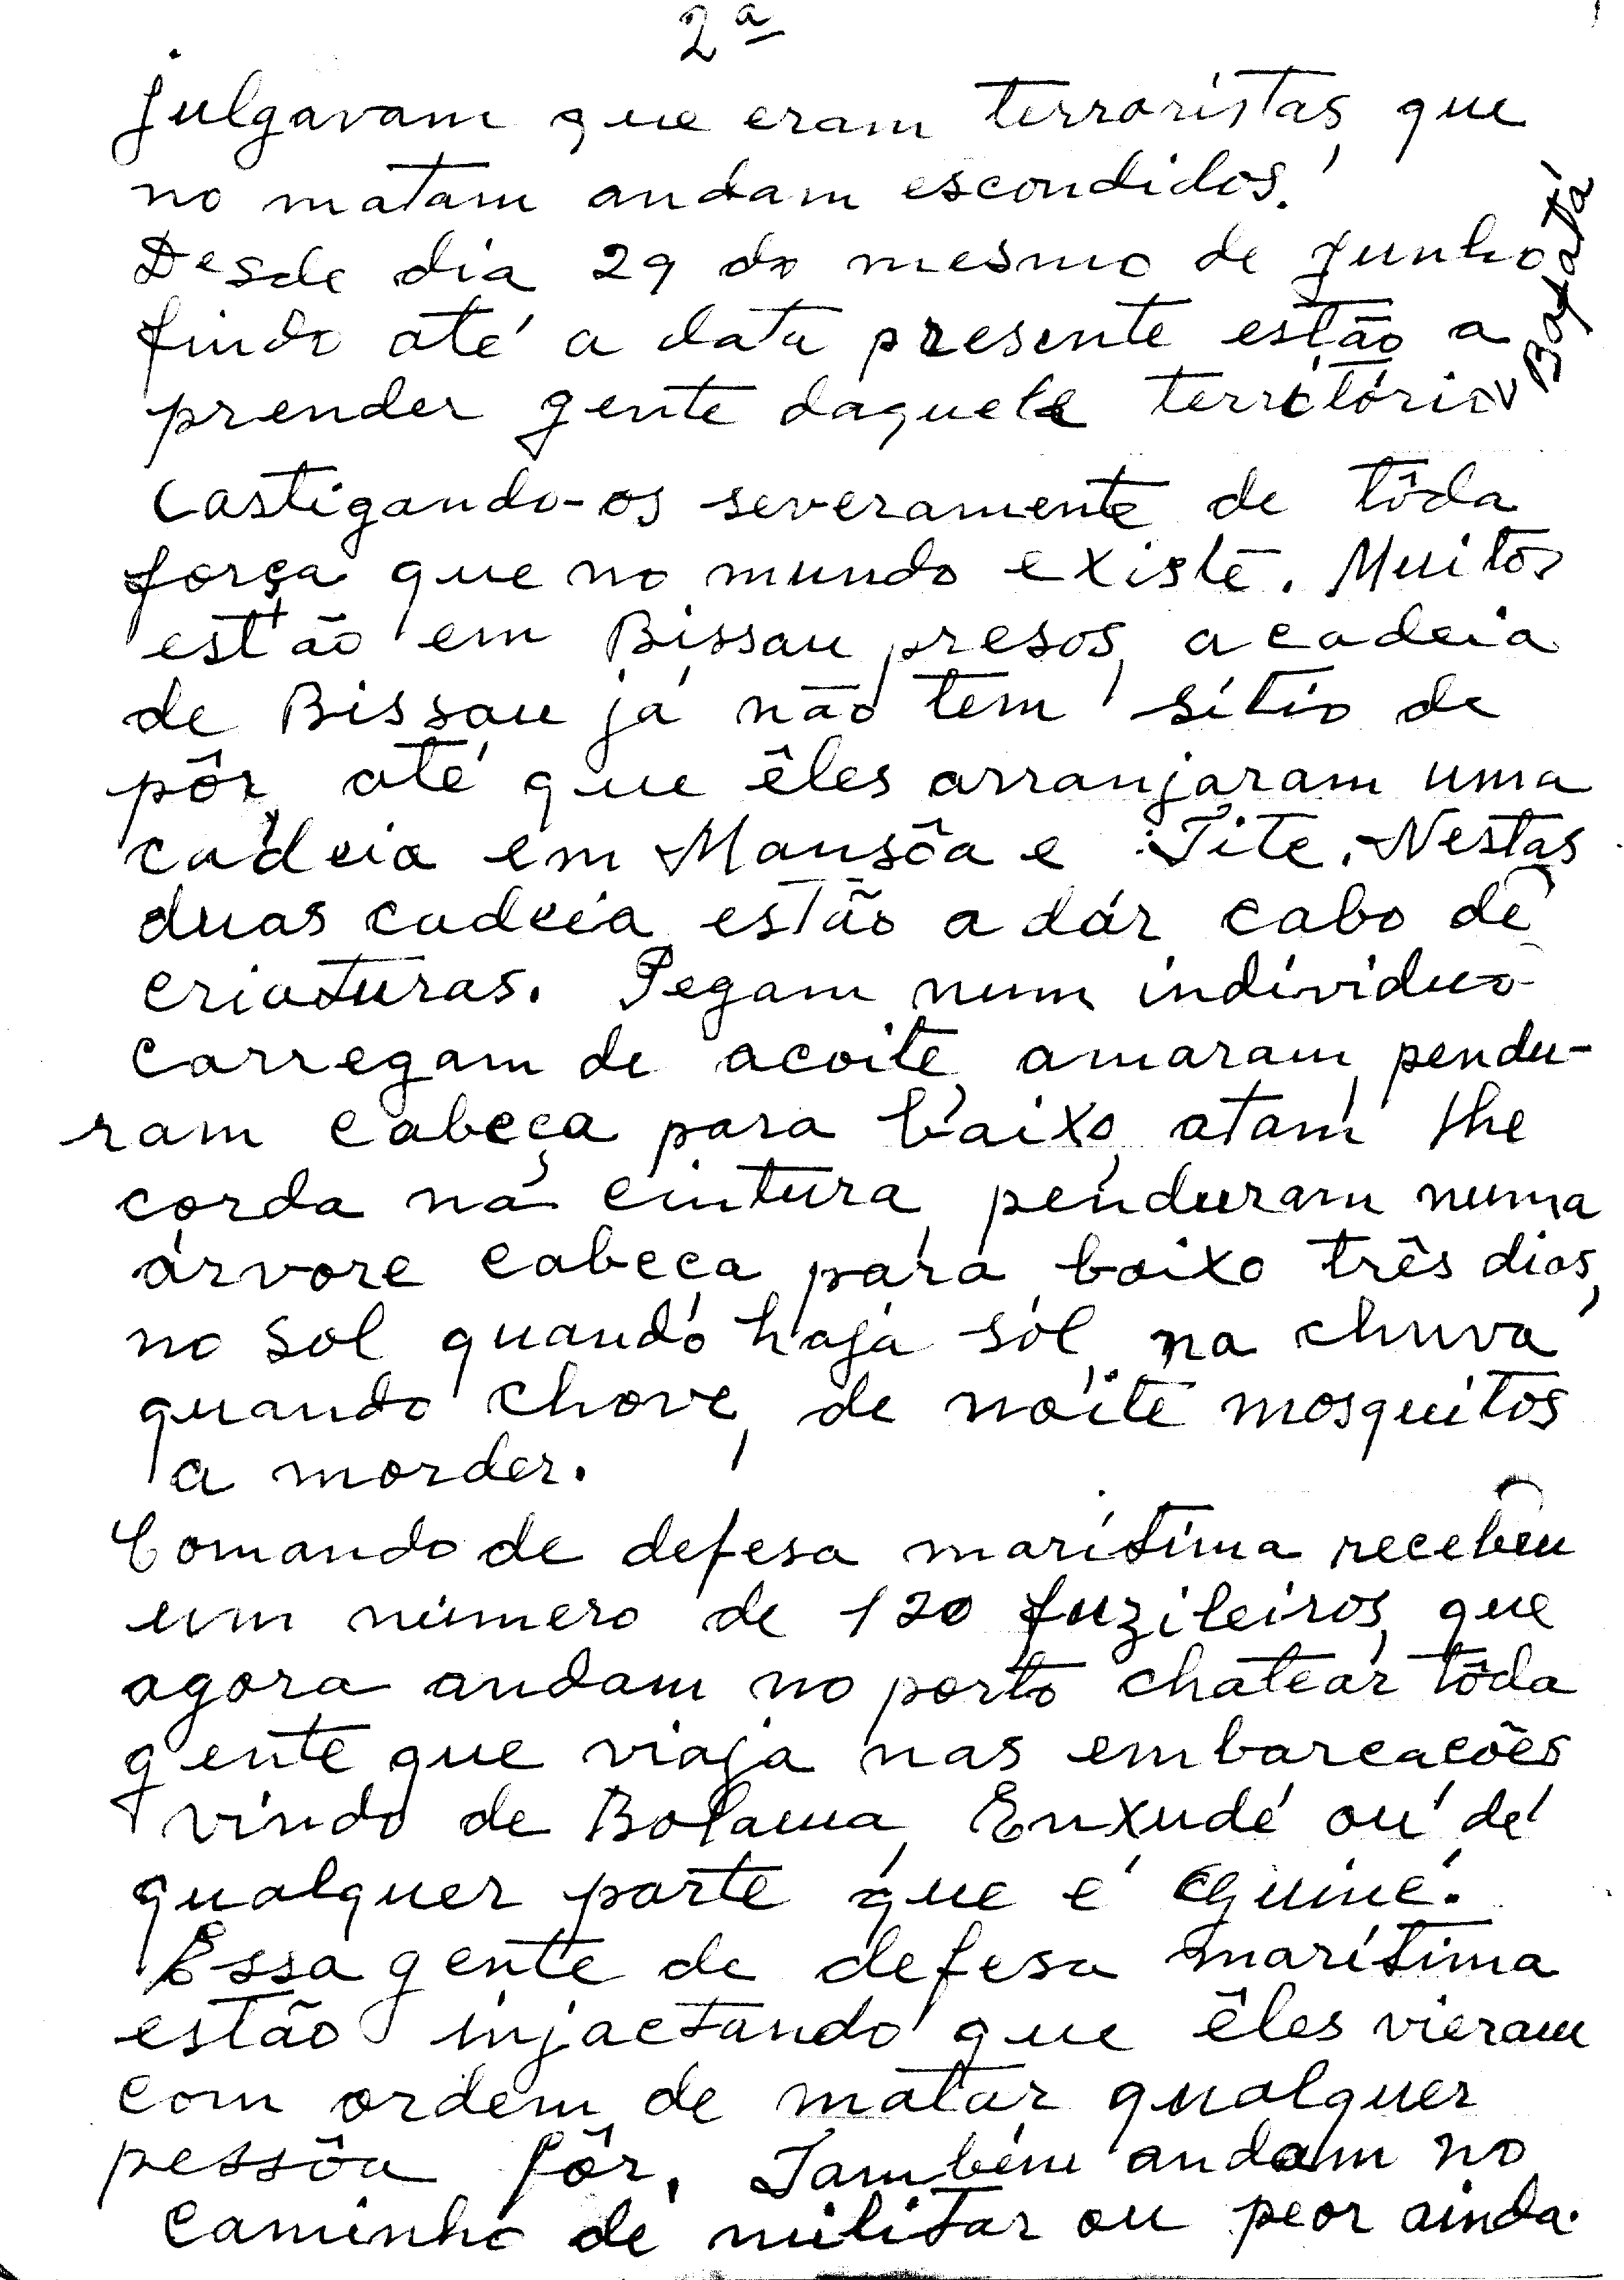 2ª
julgavam que eram terroristas, que
no matam andam escondidos.
Desde dia 29 do mesmo de junho
findo até a data presente estão a
prender gente daquele território
Castigando-os severamente de tôda
força que no mundo existe. Muitos
estão em Bissau presos, a cadeia
de Bissau já não tem sítio de
pôr, até que êles arranjaram uma
cadeia em Mansôa e Tite. Nestas
duas cadeia estão a dár cabo de
criaturas. Pegam num indivíduo
carregam de acoite, amaram, pendu-
ram cabeça para baixo, atam lhe
corda na cintura, penduram numa
árvore cabeça para baixo três dias,
no sol quando haja sól, na chuva
quando chove, de noite mosquitos
a morder.
Comando de defesa marítima recebeu
um número de 120 fuzileiros, que
agora andam no porto chatear tôda
gente que viaja nas embarcacões
vindo de Bolama, Enxudé ou de
qualquer parte que é Guiné.
Essa gente de defesa marítima
estão injactando que êles vieram
com ordem de matar qualquer
pessôa fôr. Também andam no
caminho de militar ou peor ainda.